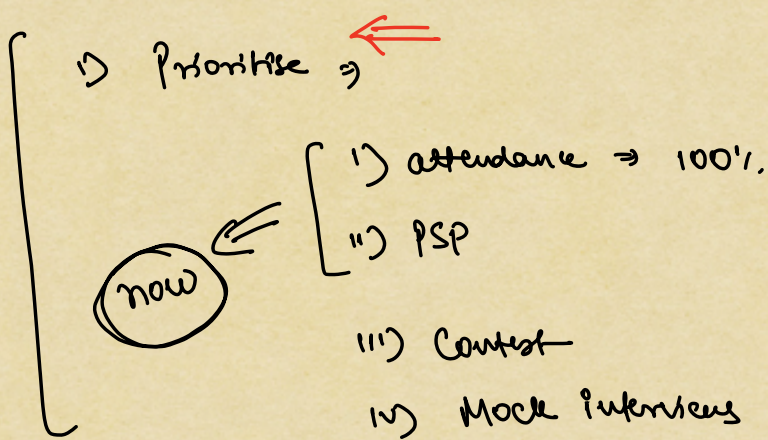 i) Prioritise ⇒
i) attendance ⇒ 100%.
ii) PSP
now
iii) Contest
iv) Mock interviews